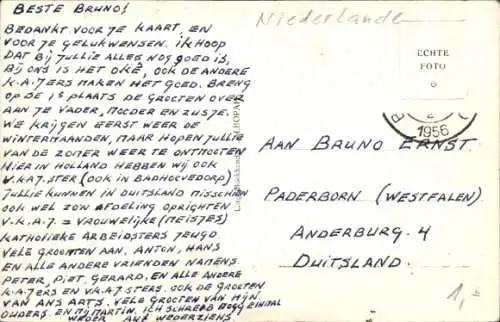 BESTE BRUNO!
Niederlande
BEDANKT VOOR JE KAART, EN
VOOR JE GELUKWENSEN. IK HOOP
DAT BIJ JULLIE ALLES NOG GOED IS,
BIJ ONS IS HET OKÉ, OOK DE ANDERE
K.A.J-ERS MAKEN HET GOED. BRENG
OP DE 1e PLAATS DE GROETEN OVER
AAN JE VADER, MOEDER EN ZUSJE.
WE KRIJGEN EERST WEER DE
WINTERMAANDEN, MAAR HOPEN JULLIE
VAN DE ZOMER WEER TE ONTMOETEN
HIER IN HOLLAND HEBBEN WIJ OOK
V.K.A.J-STER (OOK IN BADHOEVEDORP)
JULLIE KUNNEN IN DUITSLAND MISSCHIEN
OOK WEL ZO'N AFDELING OPRICHTEN
V-K.A.J. = VROUWELIJKE (MEISJES)
KATHOLIEKE ARBEIDSTERS JEUGD.
VELE GROETEN AAN, ANTON, HANS
EN ALLE ANDERE VRIENDEN NAMENS
PETER, PIET, GERARD, EN ALLE ANDERE
K.A.J-ERS EN V.K.A.J-STERS. OOK DE GROETEN
VAN ANS ARTS. VELE GROETEN VAN MIJN
OUDERS. EN MIJ MARTIN. IK SCHREEF NOG EENMAAL
WEDER AUF WEDERZIENS.
ECHTE
FOTO
1956
AAN BRUNO ERNST
PADERBORN (WESTFALEN)
ANDERBURG. 4
DUITSLAND.
1,-